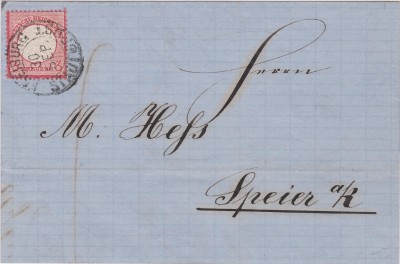 Herrn
M. Hess
Speier a/R